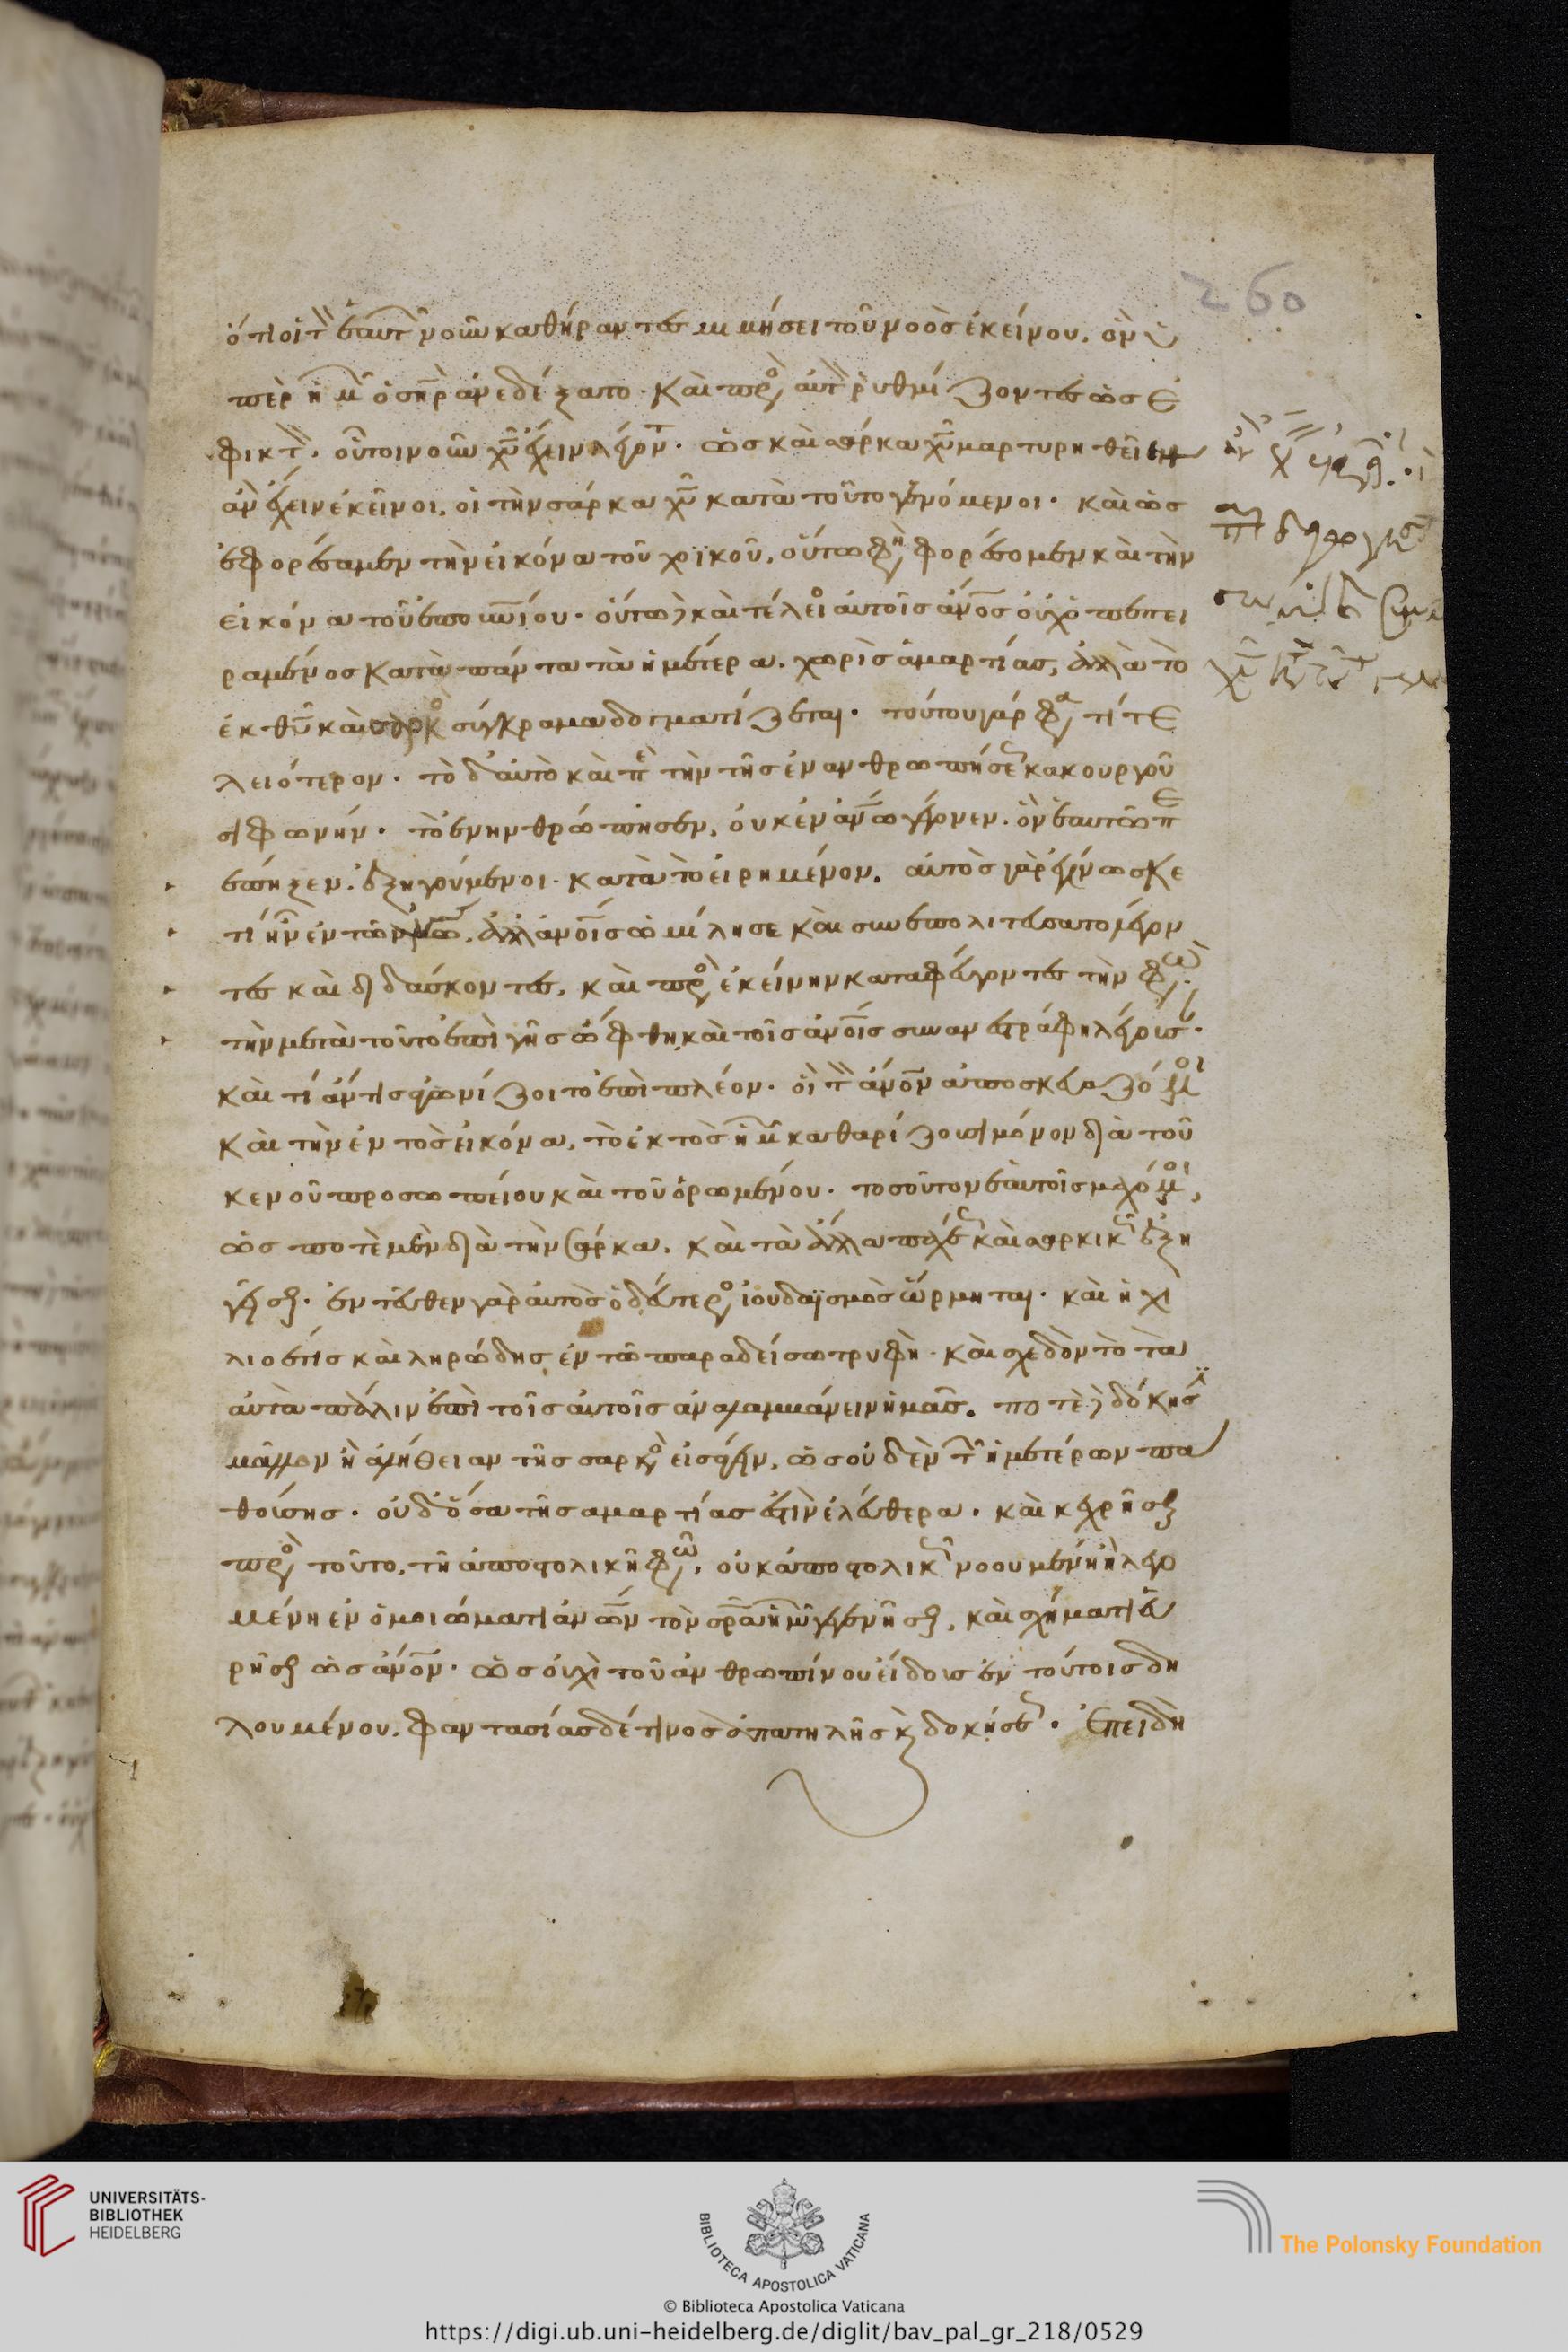 ὅτι οἱ τὸν ἑαυτῶν νοῦν καθήραντες μιμήσει τοῦ νοὸς ἐκείνου, ὃν ὑ
πὲρ ἡμῶν ὁ σηρ ἀνεδέξατο. καὶ πρὸς αὐτὸν ῥυθμίζοντες ὡς ἐ
φικτὸν. οὗτοι νοῦν χυ ἔχειν λέγονται. ὡς καὶ σάρκα χυ μαρτυρηθεῖεν
ἂν ἔχειν ἐκεῖνοι, οἱ τὴν σάρκα χυ κατὰ τοῦτο γενόμενοι. καὶ ὡς
ἐφορέσαμεν τὴν εἰκόνα τοῦ χοϊκοῦ, οὕτω φησὶ φορέσομεν καὶ τὴν
εἰκόνα τοῦ ἐπουνίου. οὕτω καὶ τέλειος αὐτοῖς ἄνος οὐχ ὁ πεπει
ραμένος κατὰ πάντα τὰ ἡμέτερα. χωρὶς ἁμαρτίας, ἀλλὰ τὸ
ἐκ θυ καὶ σαρκὸς σύγκραμα δογματίζεται. τούτου γάρ φασι τί τε
λειότερον. τὸ δ' αὐτὸ καὶ περὶ τὴν τῆς ἐνανθρωπήσεως κακουργοῦ
σι φωνήν. τὸ ἐνηνθρώπησεν, οὐκ ἐν ἀνω γέγονεν. ὃν ἑαυτῶ περι
έπηξεν. ἐξηγούμενοι. κατὰ τὸ εἰρημένον. αὐτὸς γὰρ ἐγίνωσκε
τί ἦν ἐν τῶ ἀνω, ἀλλ' ἀνοις ὡμίλησε καὶ συνεπολιτεύσατο λέγον
τες καὶ διδάσκοντες, καὶ πρὸς ἐκείνην καταφεύγοντες τὴν φωνὴν.
τὴν μετὰ τοῦτο ἐπὶ γῆς ὤφθη καὶ τοῖς ἀνοις συνανεστράφη λέγουσαν.
καὶ τί ἂν τις ἀγωνίζοιτο ἐπὶ πλέον. οἳ τὸν ἄνον ἀποσκευαζόμενοι
καὶ τὴν ἐντὸς εἰκόνα, τὸ ἐκτὸς ἡμῶν καθαρίζουσι μόνον διὰ τοῦ
καινοῦ προσωπείου καὶ τοῦ ὁρωμένου. τοσοῦτον ἑαυτοῖς μαχόμενοι,
ὡς ποτὲ μὲν διὰ τὴν σάρκα. καὶ τὰ ἄλλα παχέως καὶ σαρκικῶς ἐξη
γεῖσθαι. ἐντεῦθεν γὰρ αὐτοῖς ὁ δεύτερος ἰουδαϊσμὸς ὥρμηται. καὶ ἡ χι
λιοετὴς καὶ ληρώδης ἐν τῶ παραδείσω τρυφὴ. καὶ σχεδὸν τὸ τὰ
αὐτὰ πάλιν ἐπὶ τοῖς αὐτοῖς ἀναλαμβάνειν ἡμᾶς. ποτὲ δὲ δόκησιν
μᾶλλον ἢ ἀλήθειαν τῆς σαρκὸς εἰσάγειν, ὡς οὐδὲν τῶν ἡμετέρων πα
θούσης. οὐδ' ὅσα τῆς ἁμαρτίας ἐστὶν ἐλεύθερα. καὶ κεχρῆσθαι
πρὸς τοῦτο, τῆ ἀποστολικῆ φωνῆ, οὐκ ἀποστολικῶς νοουμένη ἢ λεγο
μένη ἐν ὁμοιώματι ἀνων τὸν σρα ἡμῶν γεγενῆσθαι, καὶ σχήματι εὑ
ρῆσθαι ὡς ἄνον. ὡς οὐχὶ τοῦ ἀνθρωπίνου εἴδους ἐν τούτοις δη
λουμένου, φαντασίας δέ τινος ἀπατηλῆς καὶ δοκήσεως. Ἐπειδὴ
260
UNIVERSITÄTS-
BIBLIOTHEK
HEIDELBERG
BIBLIOTECA APOSTOLICA VATICANA
The Polonsky Foundation
© Biblioteca Apostolica Vaticana
https://digi.ub.uni-heidelberg.de/diglit/bav_pal_gr_218/0529